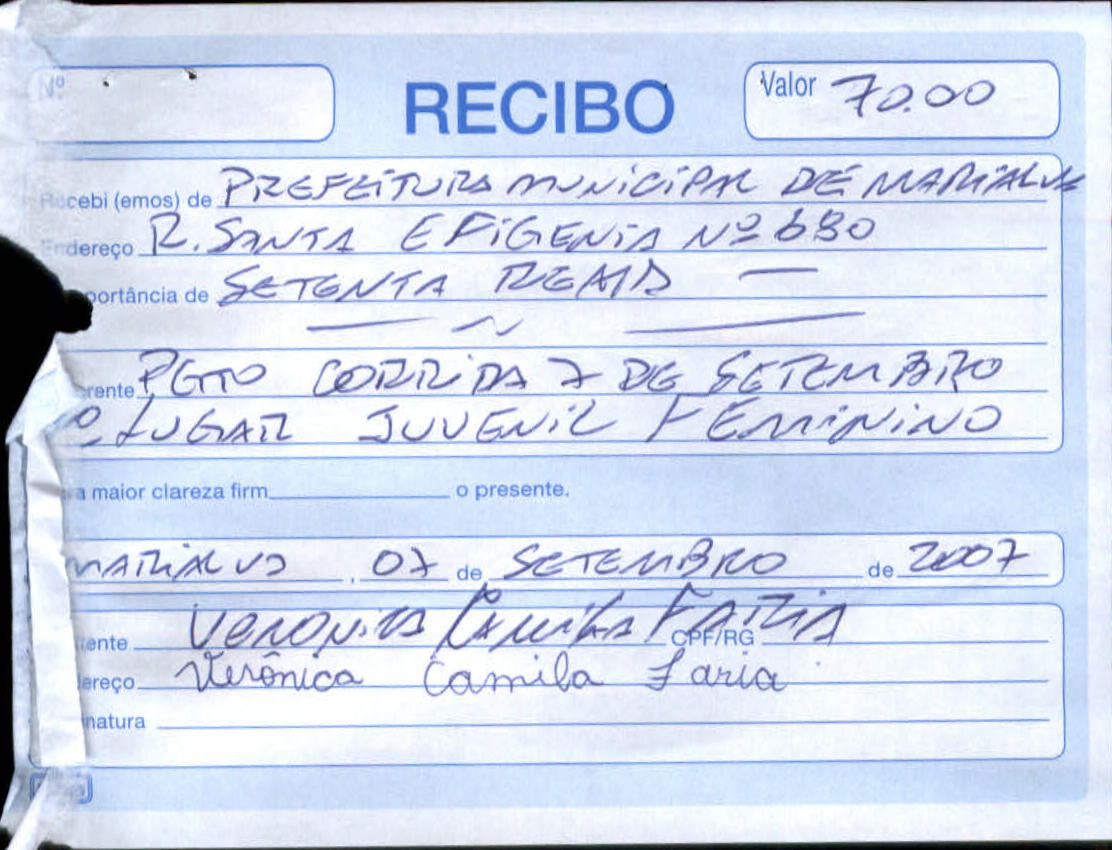 Nº RECIBO Valor 70.00
Recebi (emos) de PREFEITURA MUNICIPAL DE MARIALVA
Endereço R. SANTA EFIGENIA Nº 680
portância de SETENTA REAIS
rente PGTO CORRIDA 7 DE SETEMBRO
º LUGAR JUVENIL FEMININO
a maior clareza firm o presente.
MARIALVA, 07 de SETEMBRO de 2007
ente VERONICA CAMILA FARIA CPF/RG
ereço Verônica Camila Faria
natura